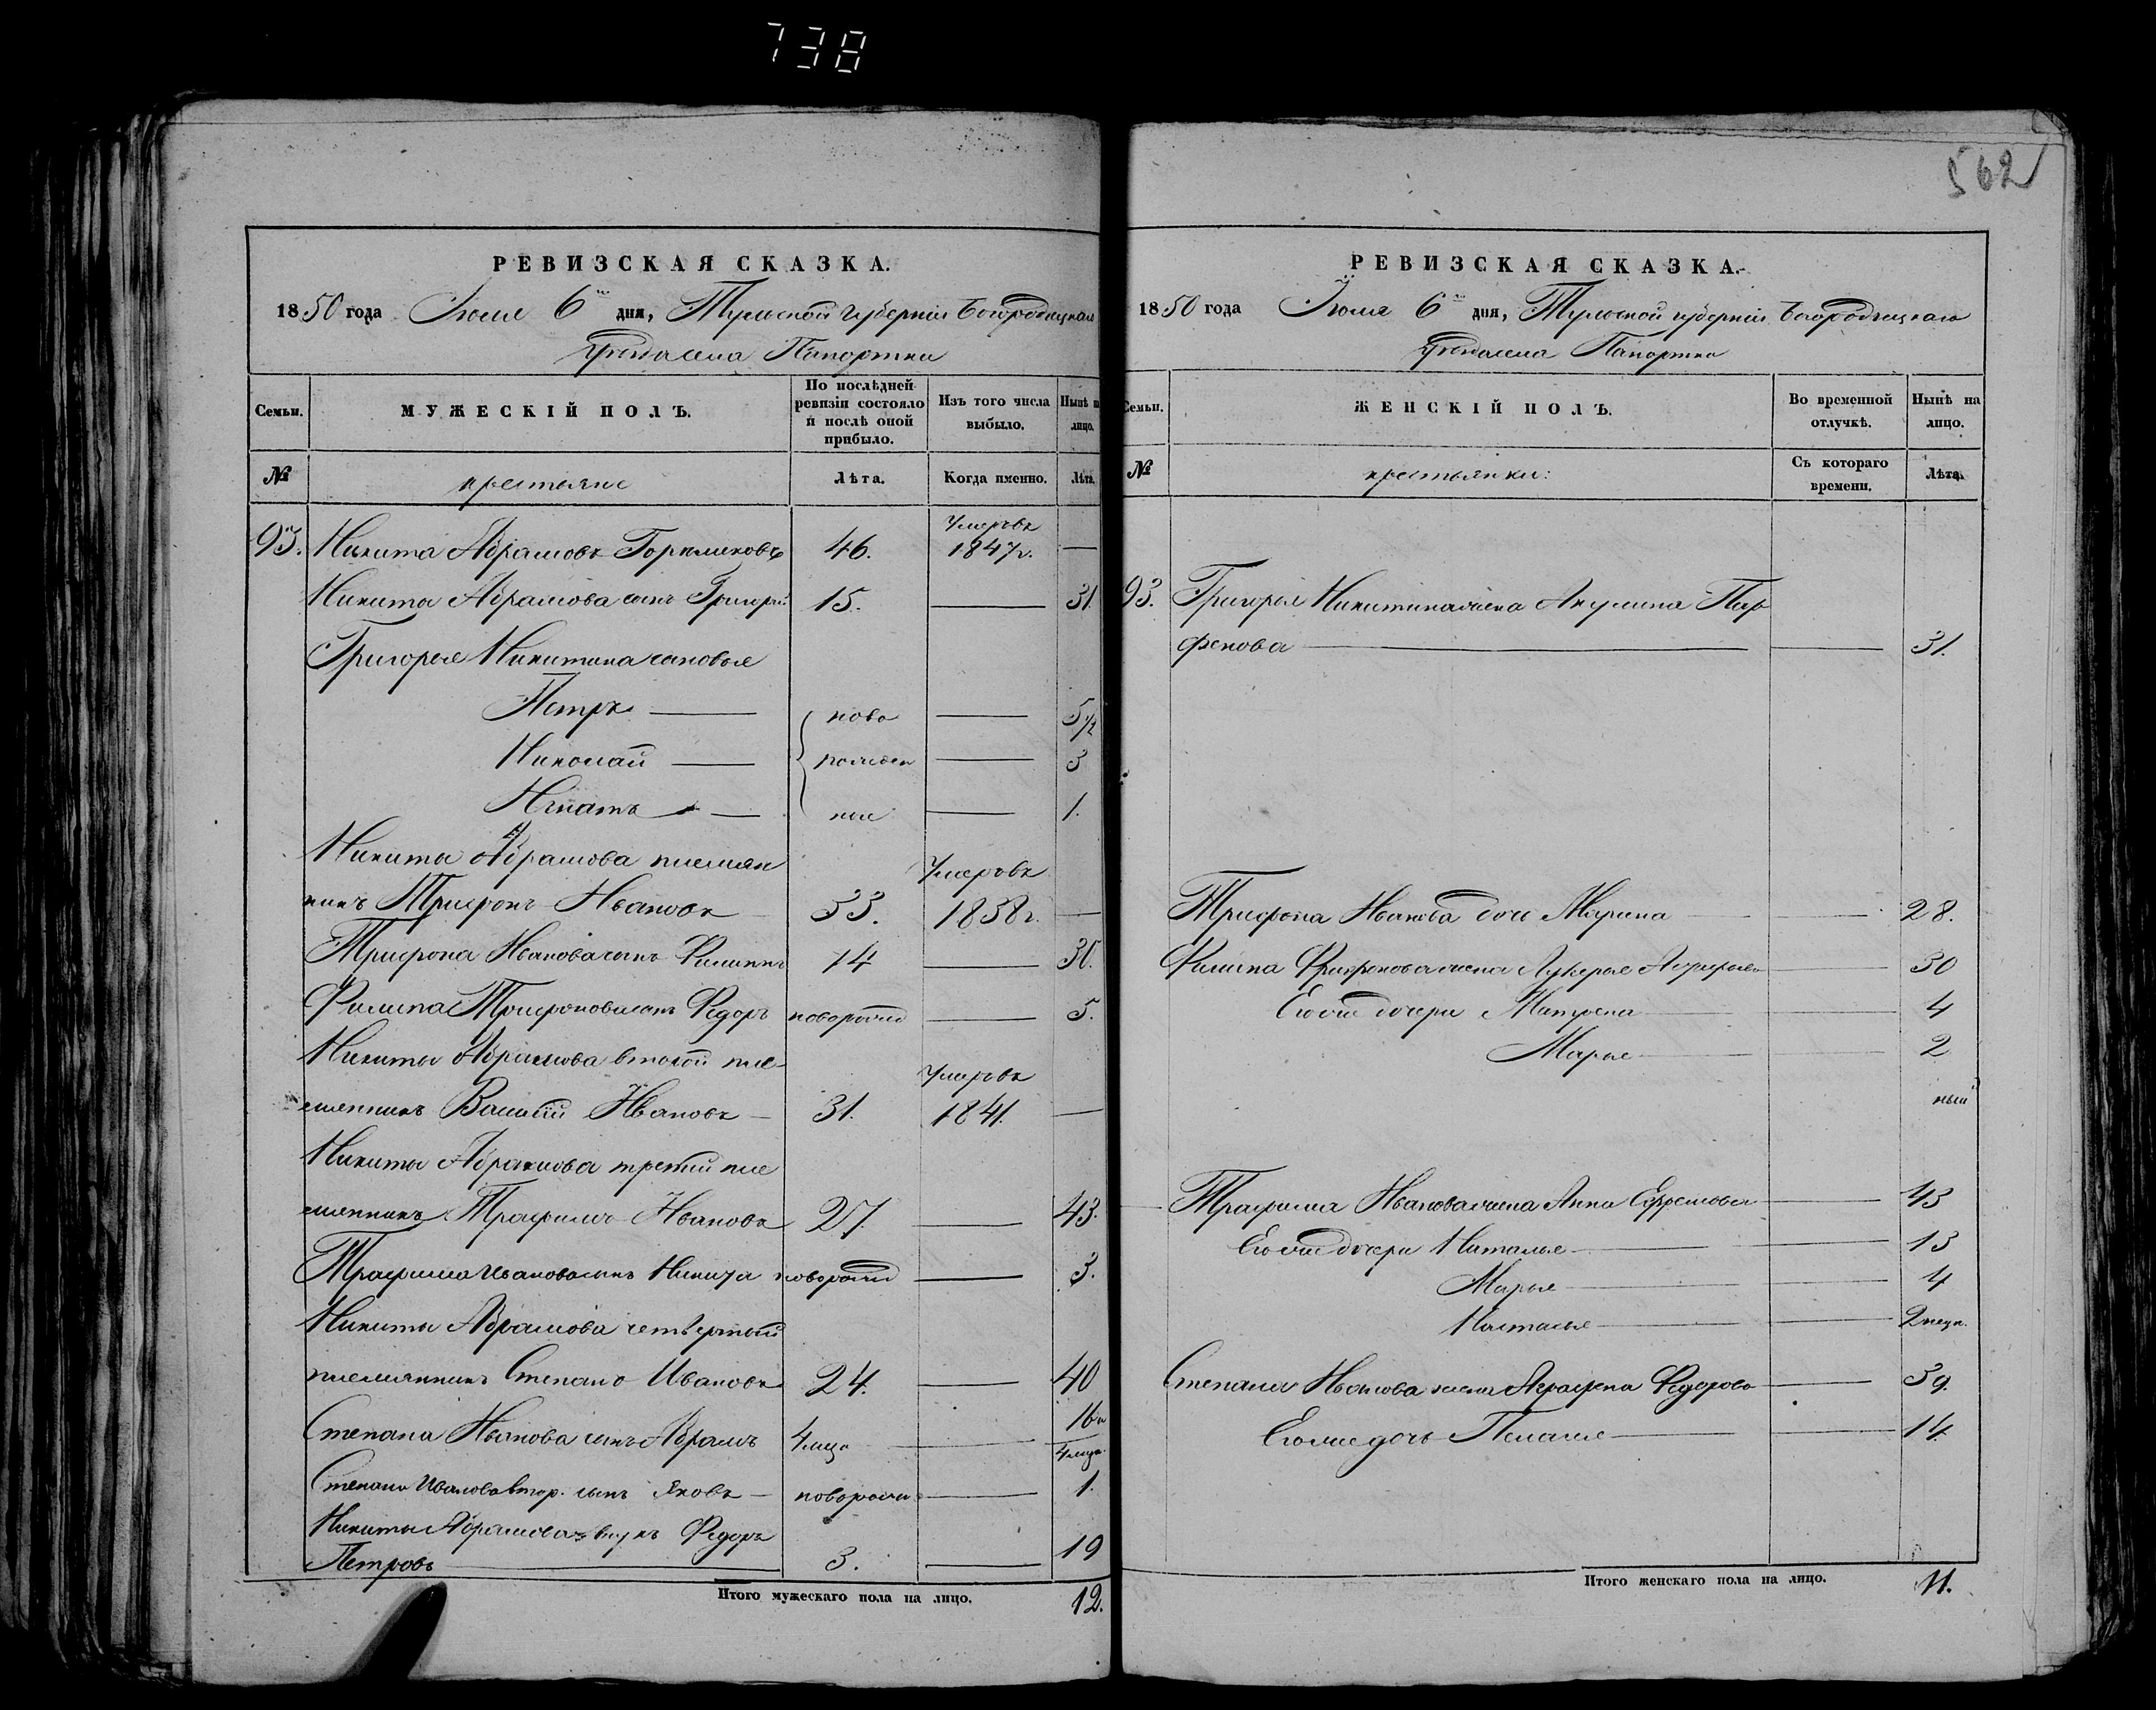 738
562
РЕВИЗСКАЯ СКАЗКА.
1850 года Июля 6го дня, Тульской губернiи Богородицкаго
уѣзда села Папортки
Семьи.
МУЖЕСКIЙ ПОЛЪ.
По послѣдней ревизiи состояло и послѣ оной прибыло.
Изъ того числа выбыло.
Нынѣ на лицо.
№
крестьяне
Лѣта.
Когда именно.
Лѣта.
93. Никита Абрамовъ 46. Умеръ въ 1847 г. —
Никиты Абрамова сынъ Григорiй 15. — 31.
Григорья Никитина сыновья
Петръ — ново — 5 1/2
Николай — рожден — 3
Игнатъ — ные — 1.
Никиты Абрамова племян
никъ Трифонъ Ивановъ 33. Умеръ въ 1838 г. —
Трифона Иванова сынъ Филиппъ 14 — 30.
Филипа Трифонова сынъ Федоръ новорожд — 5.
Никиты Абрамова второй пле-
мянникъ Василiй Ивановъ — 31. Умеръ въ 1841. —
Никиты Абрамова третiй пле
мянникъ Трафимъ Ивановъ 27. — 43.
Трафима Иванова сынъ Никита новорожд — 3.
Никиты Абрамова четвертый
племянникъ Степанъ Ивановъ 24. — 40
Степана Иванова сынъ Абрамъ 4 меся — 16 и 4 месяц.
Степана Иванова втор. сынъ Яковъ — новорожд — 1.
Никиты Абрамова внукъ Федоръ
Петровъ — 3. — 19
Итого мужескаго пола на лицо. 12.
РЕВИЗСКАЯ СКАЗКА.
1850 года Июля 6го дня, Тульской губернiи Богородицкаго
уѣзда села Папортки
Семьи.
ЖЕНСКIЙ ПОЛЪ.
Во временной отлучкѣ.
Нынѣ на лицо.
№
крестьянки:
Съ котораго времени.
Лѣта.
93. Григорья Никитина жена Акулина Пар
фенова — — 31.
Трифона Иванова дочь Марина — 28.
Филипа Трифонова жена Лукерья — 30
Его же дочери Матрена — 4
Марья — 2
ный
Трафима Иванова жена Анна Ефремова — 43
Его же дочери Наталья — 13
Марья — 4
Настасья — 2 неде.
Степана Иванова жена Аграфена Федорова — 39.
Его же дочь Пелагея — 14.
Итого женскаго пола на лицо. 11.